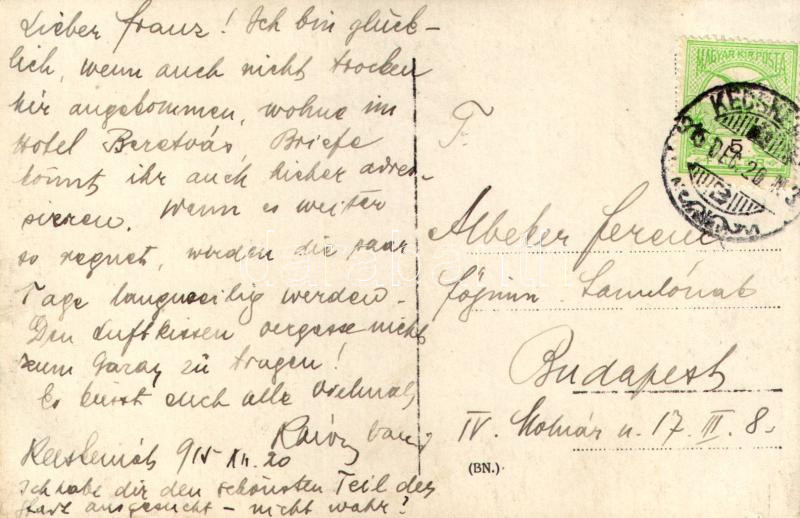 Lieber Franz! Ich bin glück-
lich, wenn auch nicht trocken
hir angekommen, wohne im
Hotel Beretvás, Briefe
könnt ihr auch hieher adres-
sieren. Wenn es weiter
so regnet, werden die paar
Tage langweilig werden.
Den Luftkissen vergesse nicht
zum Garay zu tragen!
Es küsst euch alle vielmals
Kecskemét 915 XII. 20
Ich habe dir den schönsten Teil der
Stadt ausgesucht – nicht wahr?
MAGYAR KIR. POSTA
5
KECSKEM
915 DEC. 20
T.
Albeker Ferenc
főginn. tanulónak
Budapest
IV. Molnár u. 17. III. 8.
(BN.)
darabanth